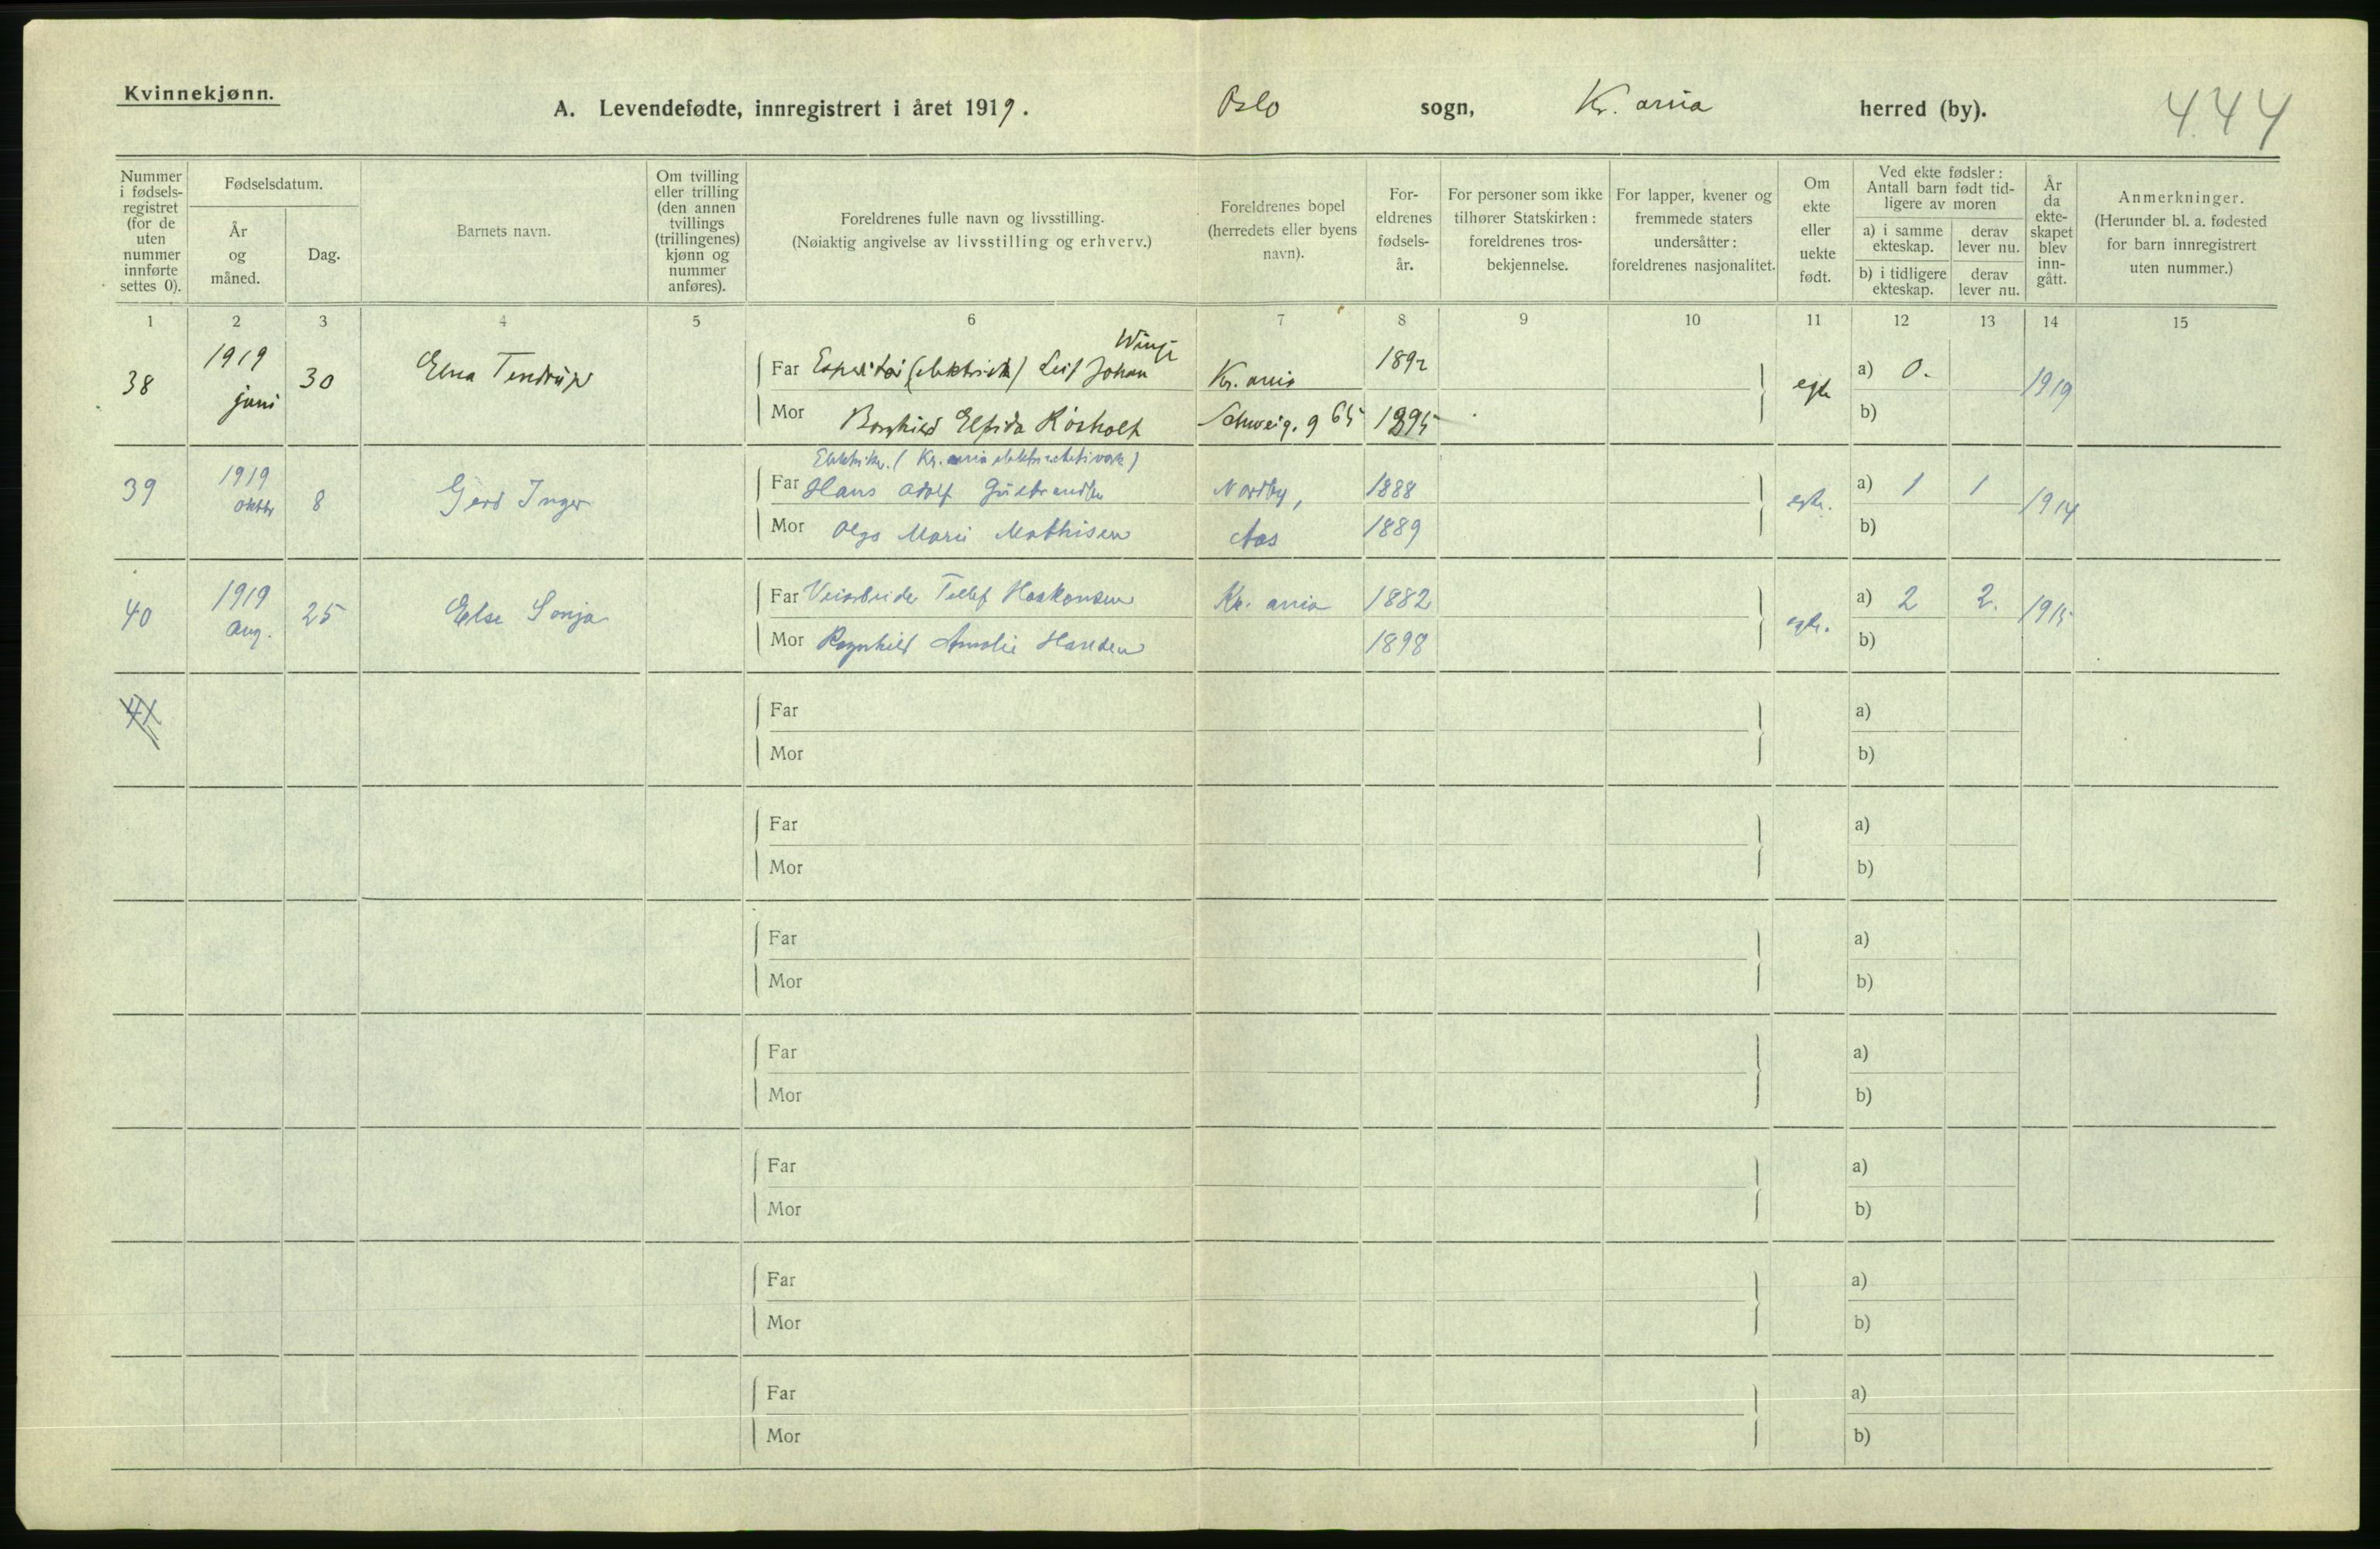 Kvinnekjønn.
A. Levendefødte, innregistrert i året 1919. Oslo sogn, Kr. ania herred (by). 444
Nummer i fødsels-registret (for de uten nummer innførte settes 0).
Fødselsdatum.
År og måned.
Dag.
Barnets navn.
Om tvilling eller trilling (den annen tvillings (trillingenes) kjønn og nummer anføres).
Foreldrenes fulle navn og livsstilling.
(Nøiaktig angivelse av livsstilling og erhverv.)
Foreldrenes bopel (herredets eller byens navn).
For-eldrenes fødsels-år.
For personer som ikke tilhører Statskirken: foreldrenes tros-bekjennelse.
For lapper, kvener og fremmede staters undersåtter: foreldrenes nasjonalitet.
Om ekte eller uekte født.
Ved ekte fødsler: Antall barn født tid-ligere av moren
a) i samme ekteskap.
derav lever nu.
b) i tidligere ekteskap.
derav lever nu.
År da ekte-skapet blev inn-gått.
Anmerkninger.
(Herunder bl. a. fødested for barn innregistrert uten nummer.)
1 2 3 4 5 6 7 8 9 10 11 12 13 14 15
38 1919 juni 30 Elna Tendrup
Far (elektrisk) Leif Johan Winge Kr. ania 1892 egte a) 0. 1919
Mor Borghild Elfida Schweig. g 65 1895 b)
39 1919 oktbr 8 Gerd Inger
Elektriker. (Kr. ania elektricitetsverk)
Far Hans Adolf Gulbrandsen Nordby, 1888 egte. a) 1 1 1914
Mor Olga Marie Mathisen Aas 1889 b)
40 1919 aug. 25 Else Sonja
Far Veiarbeider Tellef Haakonsen Kr. ania 1882 egte. a) 2 2. 1915
Mor Ragnhild Amalie Hansen 1898 b)
41
Far a)
Mor b)
Far a)
Mor b)
Far a)
Mor b)
Far a)
Mor b)
Far a)
Mor b)
Far a)
Mor b)
Far a)
Mor b)